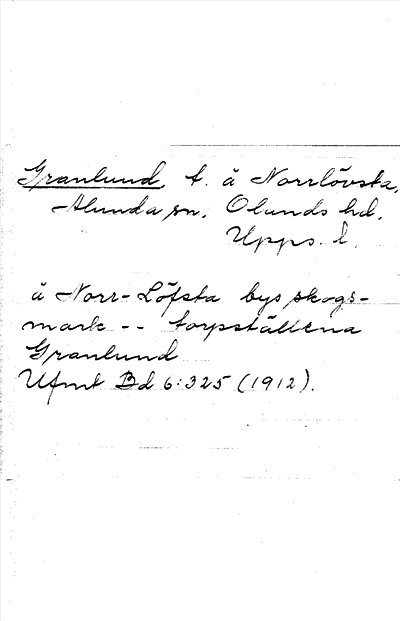 Granlund, t. å Norrlövsta,
Alunda sn. Olands hd.
Upps. l.
å Norr-Löfsta bys skogs-
mark -- torpställena
Granlund
Ufmt Bd 6:325 (1912).